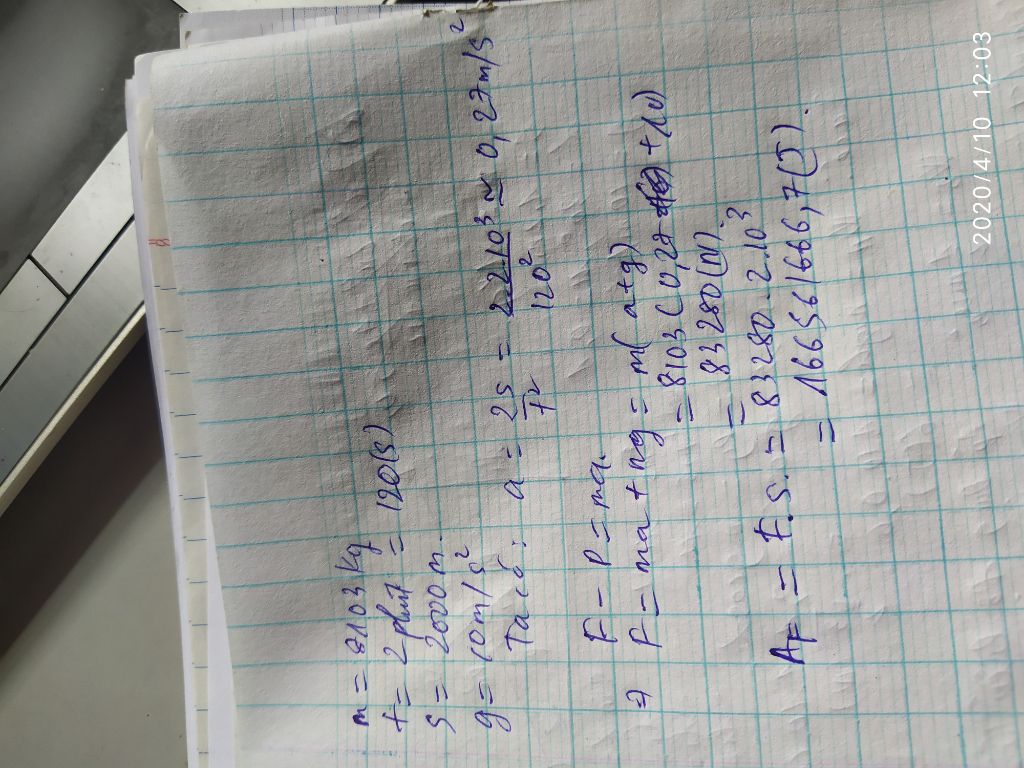 m = 8103 kg
t = 2 phút = 120(s)
s = 2000 m.
g = 10m/s²
Ta có: a = 2s/t² = 2.2.10³/120² ≈ 0,27m/s²
F - P = ma.
=> F = ma + mg = m(a+g)
= 8103(0,28 + 10)
= 83280(N).
A_F = F.s. = 83280.2.10³
= 166561666,7(J).
2020/4/10 12:03